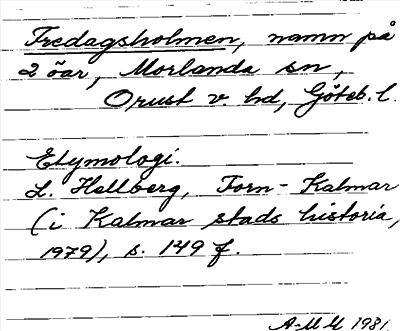 Fredagsholmen, namn på
2 öar, Morlanda sn,
Orust v. hd, Göteb. l.
Etymologi.
L. Hellberg, Forn-Kalmar
(i Kalmar stads historia,
1979), s. 149 f.
A-MM 1981